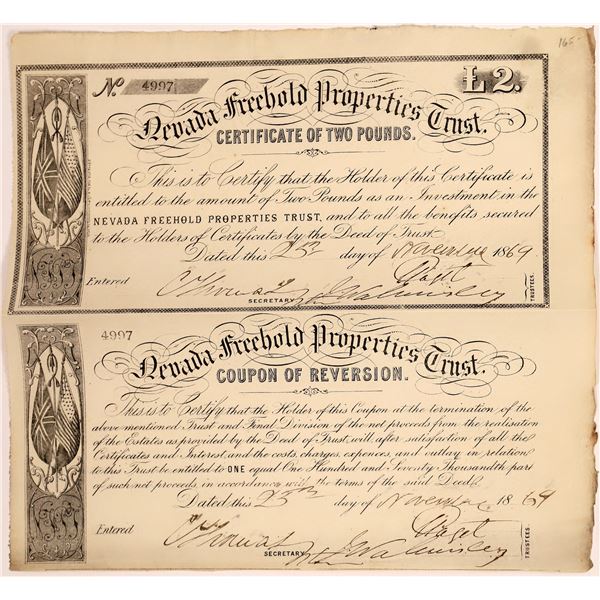 165-
No 4997
£2.
Nevada Freehold Properties Trust.
CERTIFICATE OF TWO POUNDS.
This is to Certify that the Holder of this Certificate is
entitled to the amount of Two Pounds as an Investment in the
NEVADA FREEHOLD PROPERTIES TRUST, and to all the benefits secured
to the Holders of Certificates by the Deed of Trust.
Dated this 25th day of November 1869
Entered
SECRETARY
Paget
J Walmisley
TRUSTEES.
4997
Nevada Freehold Properties Trust.
COUPON OF REVERSION.
This is to Certify that the Holder of this Coupon at the termination of the
above mentioned Trust and Final Division of the net proceeds from the realisation
of the Estates as provided by the Deed of Trust, will after satisfaction of all the
Certificates and Interest, and the costs, charges, expences, and outlay in relation
to this Trust be entitled to ONE equal One Hundred and Seventy Thousandth part
of such net proceeds in accordance with the terms of the said Deed.
Dated this 25th day of November 1869
Entered
SECRETARY
Paget
J Walmisley
TRUSTEES.